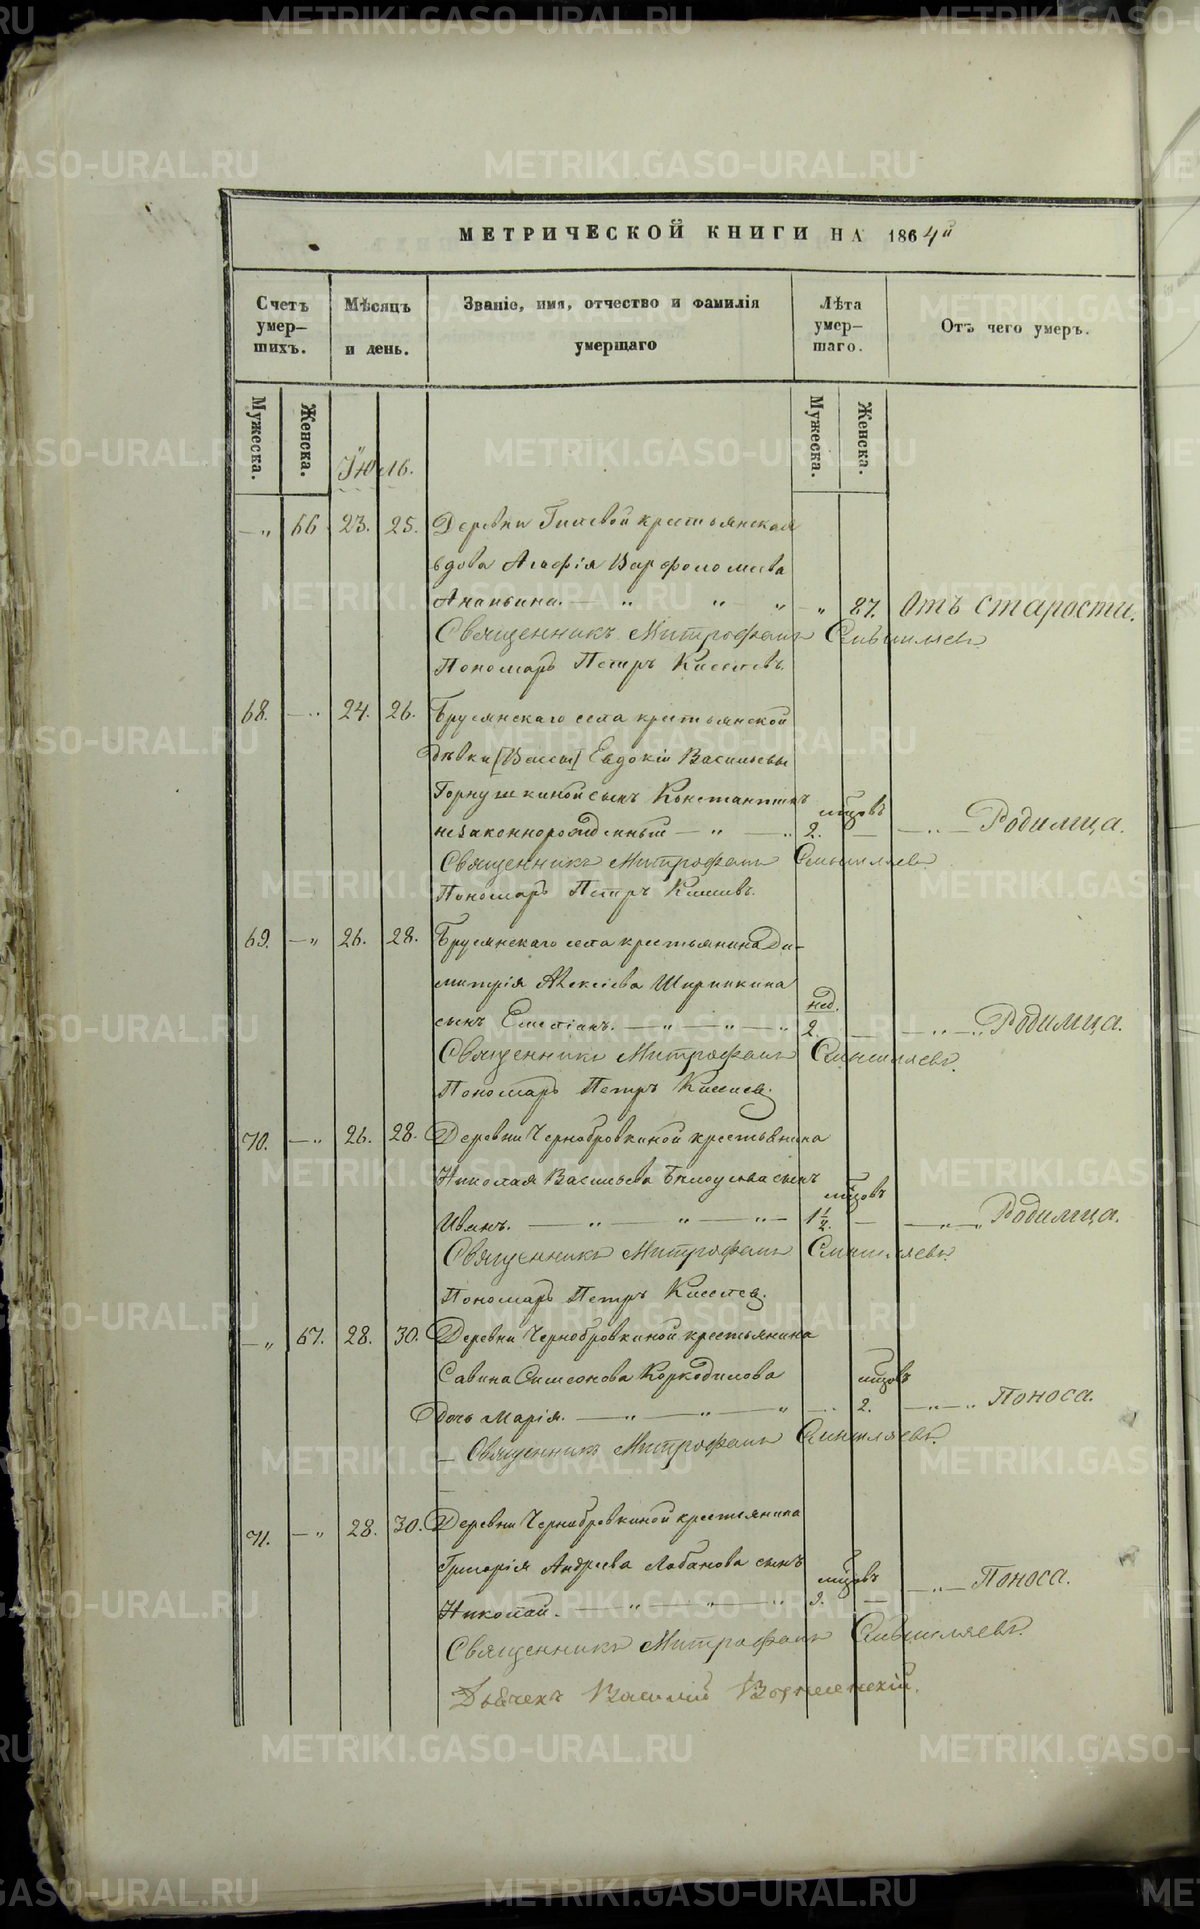 МЕТРИЧЕСКОЙ КНИГИ НА 1864й
Счетъ умер-шихъ.
Мѣсяцъ и день.
Званіе, имя, отчество и фамилія умершаго
Лѣта умер-шаго.
Отъ чего умеръ.
Мужеска.
Женска.
Мужеска.
Женска.
Іюль.
—„ 66 23. 25. Деревни Гилевой крестьянская
вдова Агафія Варфоломеева
Ананьина. — „ „ „ — „ 87. Отъ старости.
Священникъ Митрофанъ Смышляевъ
Пономарь Петръ Киселевъ.
68. —„ 24. 26. Брусянскаго села крестьянской
дѣвки [Вассы] Евдокіи Васильевы
Горнушкиной сынъ Константинъ
мцовъ
незаконнорожденный — „ — „ 2. — —„— Родимца.
Священникъ Митрофанъ Смышляевъ
Пономарь Петръ Киселевъ.
69. —„ 26. 28. Брусянскаго села крестьянина Ди-
митрія Алексіева Ширинкина
нед.
сынъ Емеліанъ. — „ — „ — „ 2. — —„—„ Родимца.
Священникъ Митрофанъ Смышляевъ.
Пономарь Петръ Киселев.
70. —„ 26. 28. Деревни Чернобровкиной крестьянина
Николая Васильева Бѣлоусова сынъ
мцовъ
Иванъ. — „ — „ — „ — 1½. — —„—„ Родимца.
Священникъ Митрофанъ Смышляевъ.
Пономарь Петръ Киселев.
—„ 67. 28. 30. Деревни Чернобровкиной крестьянина
Савина Симеонова Коркодинова
мцовъ
дочь Марія. — „ — „ — „ — 2. —„—„ Поноса.
Священникъ Митрофанъ Смышляевъ.
71. —„ 28. 30. Деревни Чернобровкиной крестьянина
Григорія Андреева Лобанова сынъ
мцовъ
Николай. — „ — „ — „ 2. — —„— Поноса.
Священникъ Митрофанъ Смышляевъ.
Дьячекъ Василій
METRIKI.GASO-URAL.RU